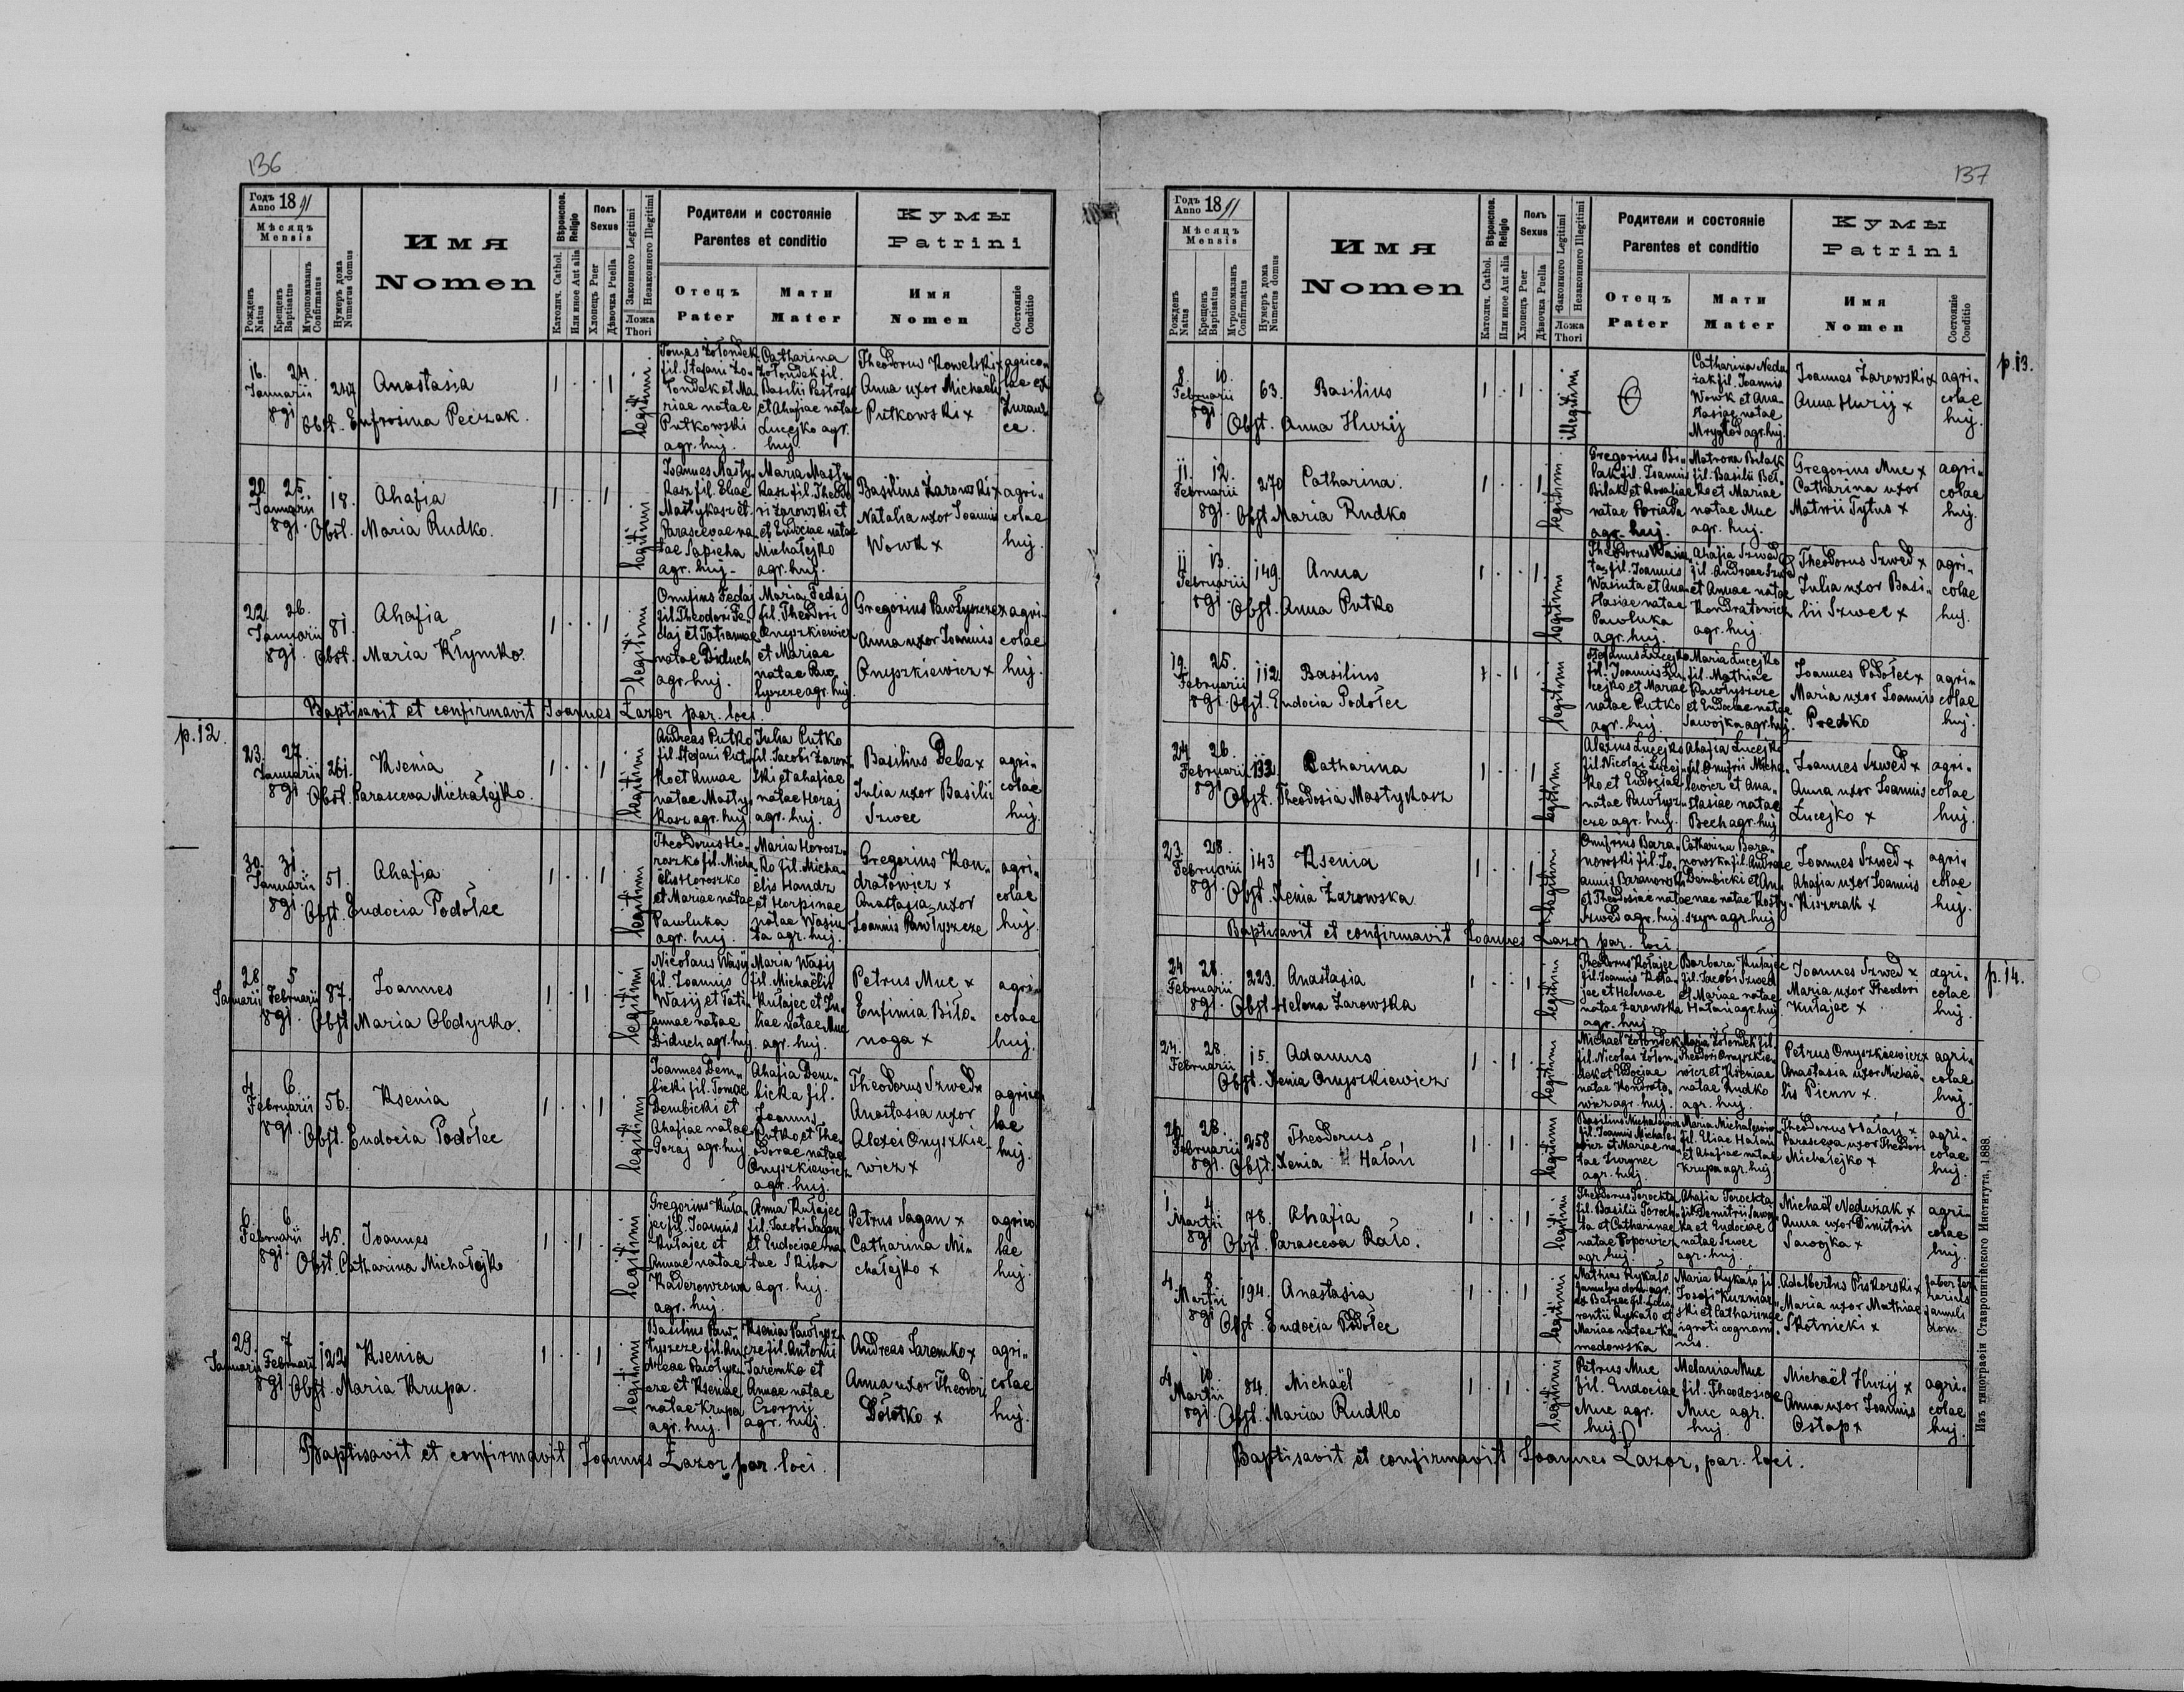 136
Годъ Anno 1891
Мѣсяцъ Mensis
Рожденъ Natus
Крещенъ Baptisatus
Мѵропомазанъ Confirmatus
Нумеръ дома Numerus domus
Имя
Nomen
Вѣроиспов. Religio
Католич. Cathol.
Или иное Aut alia
Полъ Sexus
Хлопецъ Puer
Дѣвочка Puella
Законного Legitimi
Незаконного Illegitimi
Ложа Thori
Родители и состоянiе
Parentes et conditio
Отецъ
Pater
Мати
Mater
Кумы
Patrini
Имя
Nomen
Состоянiе
Conditio
16. 24. Januarii 891
Anastasia
Obst. Eufrosina Pęczak.
legitimi.
Tomas Żołondek
fil. Stefani Żo-
łondek et Ma
riae natae
Putkowski
agr. huj.
Catharina
Żołondek fil.
et Ahafiae natae
Łucejko agr.
huj.
Theodorus Kowelski x
Anna uxor Michaelis
Putkowski x
20. 25. Januarii 891
18.
Ahafia
Obst. Maria Rudko.
legitimi
Joannes Masty
kasz fil. Eliae
Mastykasz et
Parascevae na
tae Sapieha
agr. huj.
Maria Masty
kasz fil. Theodo
ri Żarowski et
et Eudociae natae
Michałejko
agr. huj.
Basilius Żarowski x
Natalia uxor Joannis
Wowk x
agri-
colae
huj.
22. 26. Januarii 891
81.
Ahafia
Obst. Maria Kłymko.
legitimi
Onufrius Fedaj
fil. Theodori Fe-
daj et Tatiannae
natae Biduch
agr. huj.
Maria Fedaj
fil. Theodori
Onyszkiewicz
et Mariae
natae Paw
łyszcze agr. huj.
Gregorius Pawłyszcze x
Anna uxor Joannis
Onyszkiewicz x
agri-
colae
huj.
Baptisavit et confirmavit Joannes Łazor par. loci.
p. 12.
23. 27. Januarii 891
261.
Ksenia
Obst. Parasceva Michałejko.
legitimi
Andreas Putko
fil. Stefani Put-
ko et Annae
natae Masty-
kasz agr. huj.
Julia Putko
fil. Jacobi Żarow-
ski et Ahafiae
natae Horaj
agr. huj.
Basilius Deba x
Julia uxor Basilii
Szwec
agri-
colae
huj.
30. 31. Januarii 891
51.
Ahafia
Obst. Eudocia Podolec
legitimi
Theodorus Ho-
roszko fil. Micha
ëlis Horoszko
et Mariae natae
Pawluka
agr. huj.
Maria Horosz-
ko fil. Micha-
ëlis Handz
et Horpinae
natae Wasiu
ta agr. huj.
Gregorius Kon-
dratowicz x
Anastasia uxor
Joannis Pawłyszcze
agri-
colae
huj.
28 Januarii 5 Februarii 891
87.
Joannes
Obst. Maria Obdyrko.
legitimi
Nicolaus Wasij
fil. Joannis
Wasij et Tati-
annae natae
Biduch agr. huj.
Maria Wasij
fil. Michaëlis
Kułajec et Ju-
liae natae Muc
agr. huj.
Petrus Muc x
Eufimia Biło-
noga x
agri-
colae
huj.
4 6 Februarii 891
56.
Ksenia
Obst. Eudocia Podolec
legitimi
Joannes Dem-
bicki fil. Tomae
Dembicki et
Ahafiae natae
Goraj agr. huj.
Ahafia Dem-
bicka fil.
Joannis
Putko et The-
odorae natae
Onyszkiewicz
agr. huj.
Theodorus Szwed x
Anastasia uxor
Alexei Onyszkie-
wicz x
agrico
lae
huj.
6 6 Februarii 891
45.
Joannes
Obst. Catharina Michałejko
legitimi
Gregorius Kuła-
jec fil. Joannis
Kułajec et
Annae natae
agr. huj.
Anna Kułajec
fil. Jacobi Sagan
et Eudociae na
tae Skiba
agr. huj.
Petrus Sagan x
Catharina Mi-
chałejko x
agrico
lae
huj.
29. Januarii 7 Februarii 891
122
Ksenia
Obst. Maria Krupa.
legitimi
Basilius Paw-
łyszcze fil. An-
dreae Pawłysz
cze et Kseniae
natae Krupa
agr. huj.
Ksenia Pawłysz
cze fil. Antonii
Jaremko et
Annae natae
Czornij
agr. huj.
Andreas Jaremko x
Anna uxor Theodori
agri-
colae
huj.
Baptisavit et confirmavit Joannes Łazor par. loci.
137
Годъ Anno 1891
Мѣсяцъ Mensis
Рожденъ Natus
Крещенъ Baptisatus
Мѵропомазанъ Confirmatus
Нумеръ дома Numerus domus
Имя
Nomen
Вѣроиспов. Religio
Католич. Cathol.
Или иное Aut alia
Полъ Sexus
Хлопецъ Puer
Дѣвочка Puella
Законного Legitimi
Незаконного Illegitimi
Ложа Thori
Родители и состоянiе
Parentes et conditio
Отецъ
Pater
Мати
Mater
Кумы
Patrini
Имя
Nomen
Состоянiе
Conditio
p. 13.
8. 10. Februarii 891
63.
Basilius
Obst. Anna Hwzij
illegitimi
Catharina Nedw
żak fil. Joannis
Wowk et Ana-
stasiae natae
Mrygłod agr. huj.
Joannes Żarowski x
Anna Hwzij x
agri-
colae
huj.
11. 12. Februarii 891
270
Catharina.
Obst. Maria Rudko
legitimi.
Gregorius Bi-
lak fil. Joannis
Bilak et Rosaliae
natae Poriada
agr. huj.
Matrona Bilak
fil. Basilii Bot-
ko et Mariae
natae Muc
agr. huj.
Gregorius Muc x
Catharina uxor
Matwii Tytus x
agri-
colae
huj.
11 13. Februarii 891
149.
Anna
Obst. Anna Putko
legitimi
Theodorus Wasiu
ta fil. Joannis
Wasiuta et Ana-
stasiae natae
Pawluka
agr. huj.
Ahafia Szwed
fil. Andreae Szwed
et Annae natae
Kondratowicz
agr. huj.
Theodorus Szwed x
Julia uxor Basi-
lii Szwec x
agri-
colae
huj.
19. 25. Februarii 891
112
Basilius
Obst. Eudocia Podolec
legitimi
Stefanus Łucejko
fil. Joannis Łu-
cejko et Mariae
natae Putko
agr. huj.
Maria Łucejko
fil. Mathiae
Pawłyszcze
et Eudociae natae
Sawojka agr. huj.
Joannes Podolec x
Maria uxor Joannis
Predko
agri-
colae
huj.
24. 26. Februarii 891
132
Catharina
Obst. Theodosia Mastykasz
legitimi
Alexius Łucejko
fil. Nicolai Łucej-
ko et Eudociae
natae Pawłysz-
cze agr. huj.
Ahafia Łucejko
fil. Onufrii Micha-
lewicz et Ana-
stasiae natae
Bech agr. huj.
Joannes Szwed x
Anna uxor Joannis
Łucejko x
agri-
colae
huj.
23. 28. Februarii 891
143
Ksenia
Obst. Xenia Żarowska
legitimi
Onufrius Bara-
nowski fil. Jo-
annis Baranowski
et Theodosiae natae
Szwed agr. huj.
Catharina Bara-
nowska fil. Andreae
Dembicki et An-
nae natae Kosty-
szyn agr. huj.
Joannes Szwed x
Ahafia uxor Joannis
Kiszczak x
agri-
colae
huj.
Baptisavit et confirmavit Joannes Łazor par. loci
p. 14.
24 28. Februarii 891
223.
Anastasia
Obst. Helena Żarowska
legitimi
Theodorus Kułajec
fil. Joannis Kuła-
jec et Helenae
natae Żarowska
agr. huj.
Barbara Kułajec
fil. Jacobi Szwed
et Mariae natae
Hałan agr. huj.
Joannes Szwed x
Maria uxor Theodori
Kułajec x
agri-
colae
huj.
24. 28. Februarii
15.
Adamus
Obst. Xenia Onyszkiewicz
legitimi
Michael Żołondek
fil. Nicolai Żołon-
dek et Eudociae
natae Kondrato-
wicz agr. huj.
Maria Żołondek fil.
Theodori Onyszkie-
wicz et Kseniae
natae Rudko
agr. huj.
Petrus Onyszkiewicz x
Anastasia uxor Michaë-
lis Pienn x.
agri-
colae
huj.
26. 28. Februarii 891.
258
Theodorus
Obst. Xenia Hałan
legitimi
Basilius Michalewicz
fil. Joannis Michale-
wicz et Mariae na-
agr. huj.
Maria Michalewicz
fil. Eliae Hałan
et Ahafiae natae
Krupa agr. huj.
Theodorus Hałan x
Parasceva uxor Theodori
Michałejko x
agri-
colae
huj.
1 4 Martii 891
78.
Ahafia
Obst. Parasceva Rało.
legitimi
Theodorus Torochta
fil. Basilii Toroch-
ta et Catharinae
natae Popowicz
agr. huj.
Ahafia Torochta
fil. Demitrii Sawoj-
ka et Eudociae
natae Szwec
agr. huj.
Michaël Nedwżak x
Anna uxor Dimitrii
Sawojka x
agri-
colae
huj.
4 8 Martii 891
194.
Anastasia
Obst. Eudocia Podolec
legitimi
Mathias Rykało
famulus dom. agr.
Mariae natae Ko-
medowska
Maria Rykało fil.
Josefi Kuzniar-
ski et Catharinae
ignoti cognomi-
nis.
Adalbertus Piskorski x
Maria uxor Mathiae
Skotnicki x
faber fer
famuli
dom.
4 10 Martii 891.
84.
Michaël
Obst. Maria Rudko
legitimi
Petrus Muc
fil. Eudociae
Muc agr.
huj.
Melania Muc
fil. Theodosiae
Muc agr.
huj.
Michaël Hwzij x
Anna uxor Joannis
Ostap x
agri-
colae
huj.
Baptisavit et confirmavit Joannes Łazor, par. loci.
Изъ типографiи Ставропигiйского Института, 1888.